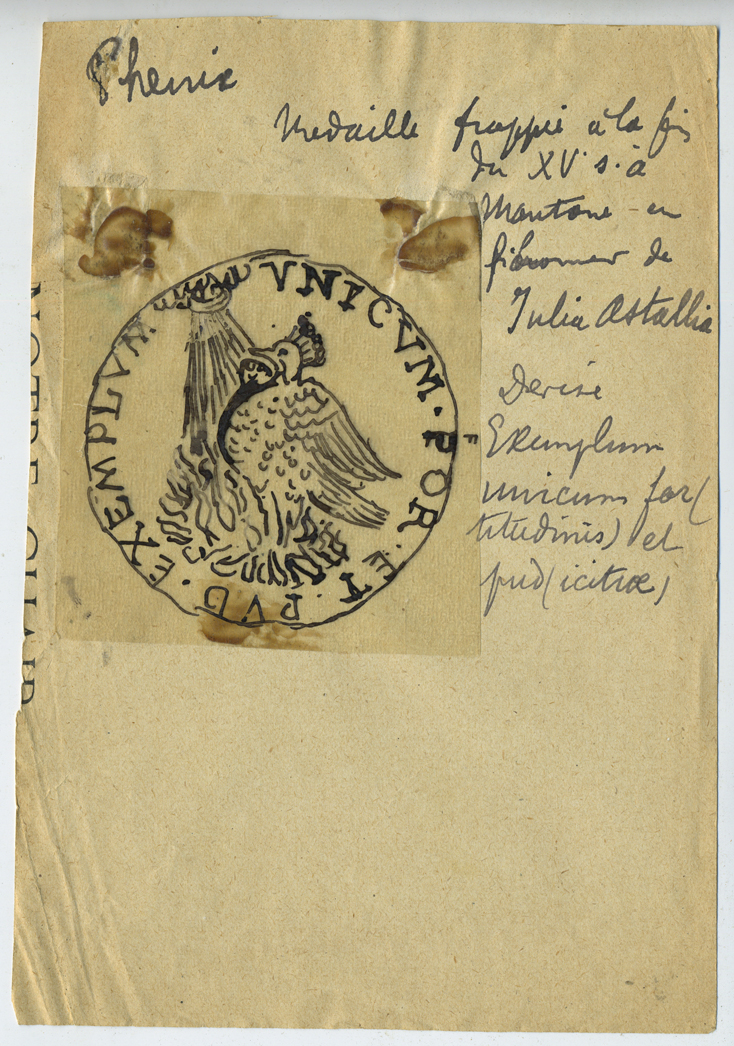 Phenix
Medaille frappée à la fin
du XV s. à
Mantoue - en
de
Julia Astallia
Devise
Exemplum
unicum for(
titudinis) et
pud(icitiæ)
EXEMPLVM VNICVM · FOR · ET · PVD ·
F
NOTRE CHAIR